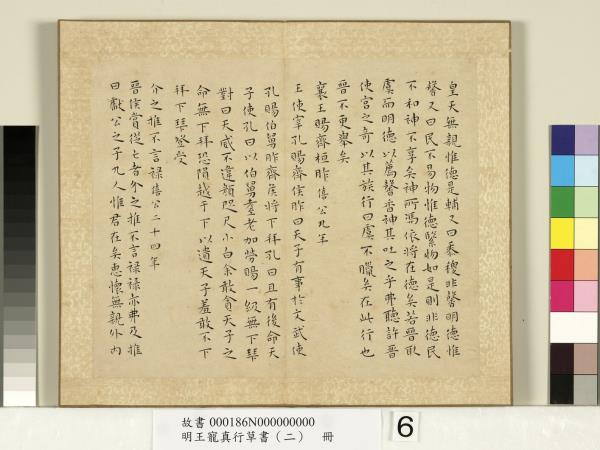 皇天無親惟德是輔又曰黍稷非馨明德惟
馨又曰民不易物惟德繄物如是則非德民
不和神不享矣神所馮依將在德矣若晉取
虞而明德以薦馨香神其吐之乎弗聽許晉
使宮之奇以其族行曰虞不臘矣在此行也
晉不更舉矣
襄王賜齊桓胙僖公九年
王使宰孔賜齊侯胙曰天子有事於文武使
孔賜伯舅胙齊侯將下拜孔曰且有後命天
子使孔曰以伯舅耋老加勞賜一級無下拜
對曰天威不違顏咫尺小白余敢貪天子之
命無下拜恐隕越于下以遺天子羞敢不下
拜下拜登受
介之推不言祿僖公二十四年
晉侯賞從亡者介之推不言祿祿亦弗及推
曰獻公之子九人惟君在矣惠懷無親外內
故書 000186N000000000
明王寵真行草書(二) 冊
6